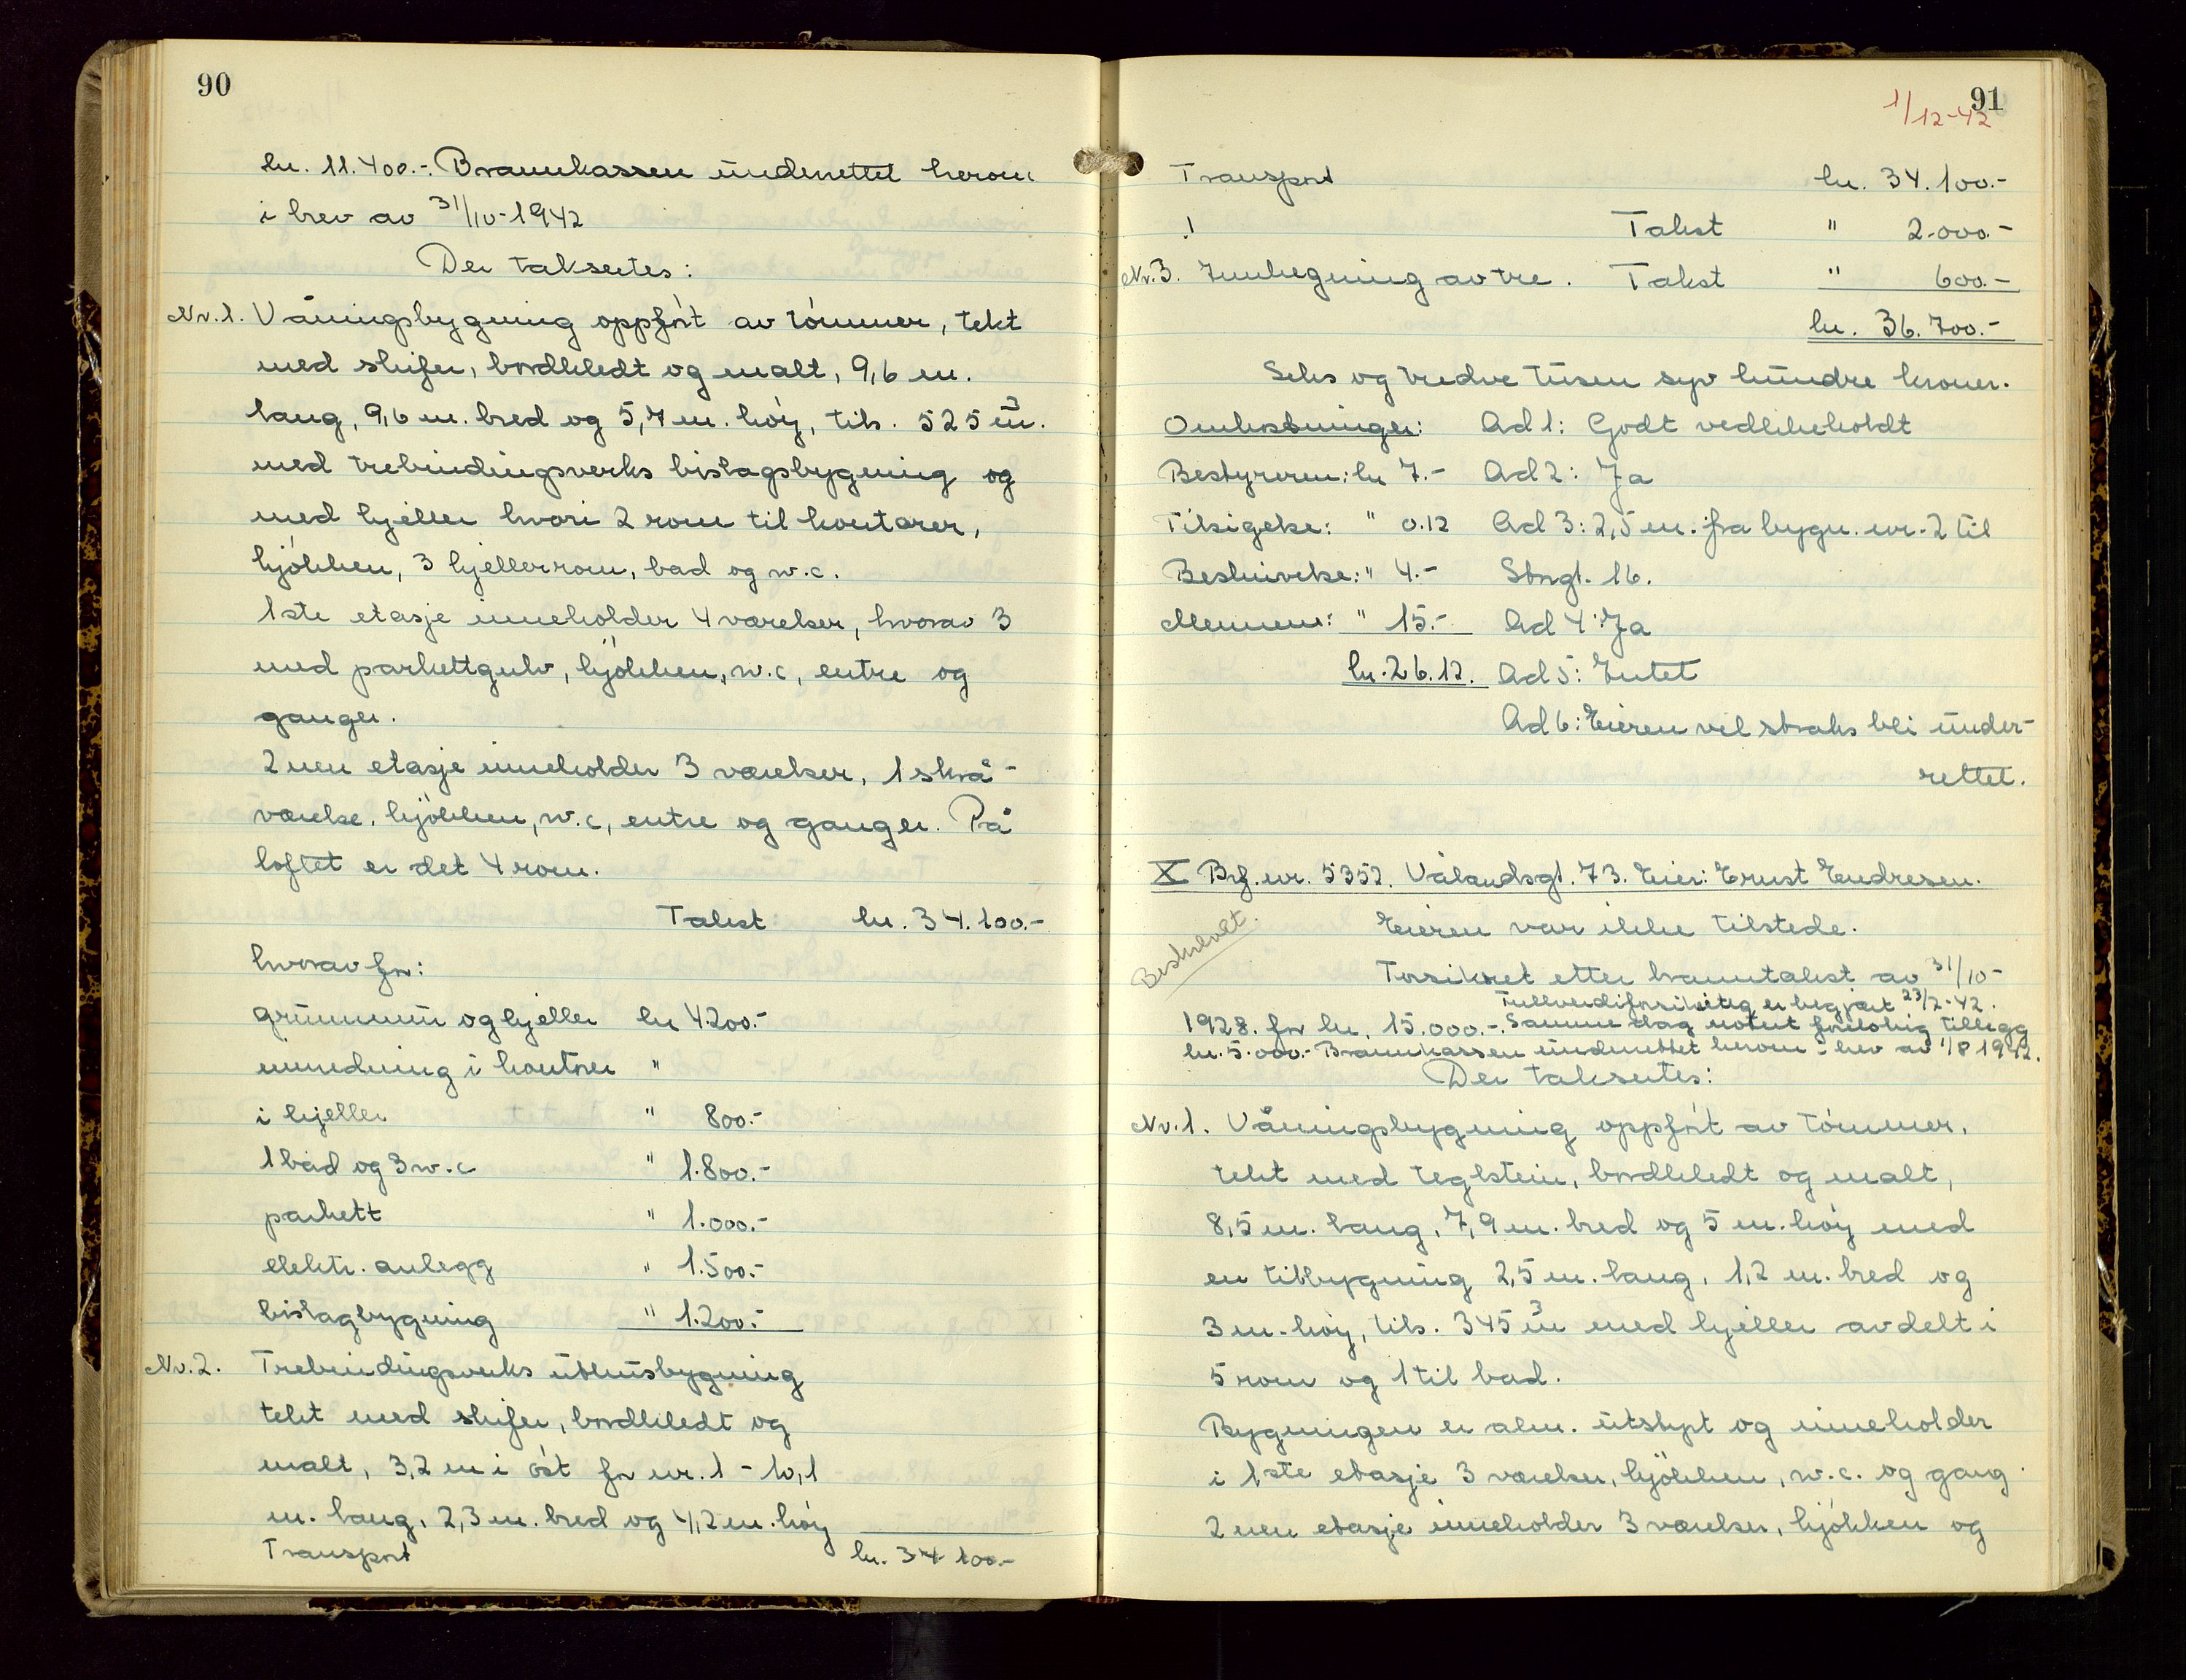 90
kr. 11.400.-. Brannkassen underrettet herom
i brev av 31/10-1942
Der taksertes:
Nr. 1. Våningsbygning oppfört av tömmer, tekt
med skifer, bordkledt og malt, 9,6 m.
lang, 9,6 m. bred og 5,7 m. höy, tils. 525 m³.
med trebindingsverks bislagsbygning og
med kjeller hvori 2 rom til kontorer,
kjökken, 3 kjellerrom, bad og w.c.
1ste etasje inneholder 4 værelser, hvorav 3
med parkettgulv, kjökken, w.c, entre og
ganger.
2nen etasje inneholder 3 værelser, 1 skrå-
værelse, kjökken, w.c, entre og ganger. På
loftet er det 4 rom.
Takst: kr. 34.100.-
hvorav for:
grunnmur og kjeller kr 4.200.-
innredning i kontorer "
i kjeller " 800.-
1 bad og 3 w.c " 1.800.-
parkett " 1.000.-
elektr. anlegg " 1.500.-
bislagbygning " 1.200.-
Nr. 2. Trebindingsverks uthusbygning
tekt med skifer, bordkledt og
malt, 3,2 m i öst for nr. 1 - 10,1
m. lang, 2,3 m. bred og 4,2 m. höy
Transport kr. 34.100.-
91
1/12-42
Transport kr. 34.100.-
Takst " 2.000.-
Nr. 3. Innhegning av tre. Takst " 600.-
kr. 36.700.-
Seks og tredve tusen syv hundre kroner.
Omkostninger: Ad 1: Godt vedlikeholdt
Bestyreren: kr 7.- Ad 2: Ja
Tilsigelse: " 0.12 Ad 3: 2,5 m. fra bygn. nr. 2 til
Beskrivelse: " 4.- Stngt. 16.
Mennene: " 15.- Ad 4: Ja
kr. 26.12. Ad 5: Intet
Ad 6: Eieren vil straks bli under-
rettet.
X Brf. nr. 5352. Vålandsgt. 73. Eier: Ernst Endresen.
Beskrevet.
Eieren var ikke tilstede.
Forsikret etter branntakst av 31/10-
Fullverdiforsikring er begjært 23/2-42.
1928. for kr. 15.000.-. Samme dag notert foreløbig tillegg
kr. 5.000.- Brannkassen underrettet herom i brev av 1/8 1942.
Der taksertes:
Nr. 1. Våningsbygning oppfört av tömmer,
tekt med teglstein, bordkledt og malt,
8,5 m. lang, 7,9 m. bred og 5 m. höy med
en tilbygning 2,5 m. lang, 1,2 m. bred og
3 m. höy, tils. 345 m³ med kjeller avdelt i
5 rom og 1 til bad.
Bygningen er alm. utstyrt og inneholder
i 1ste etasje 3 værelser, kjökken, w.c. og gang.
2nen etasje inneholder 3 værelser, kjökken og